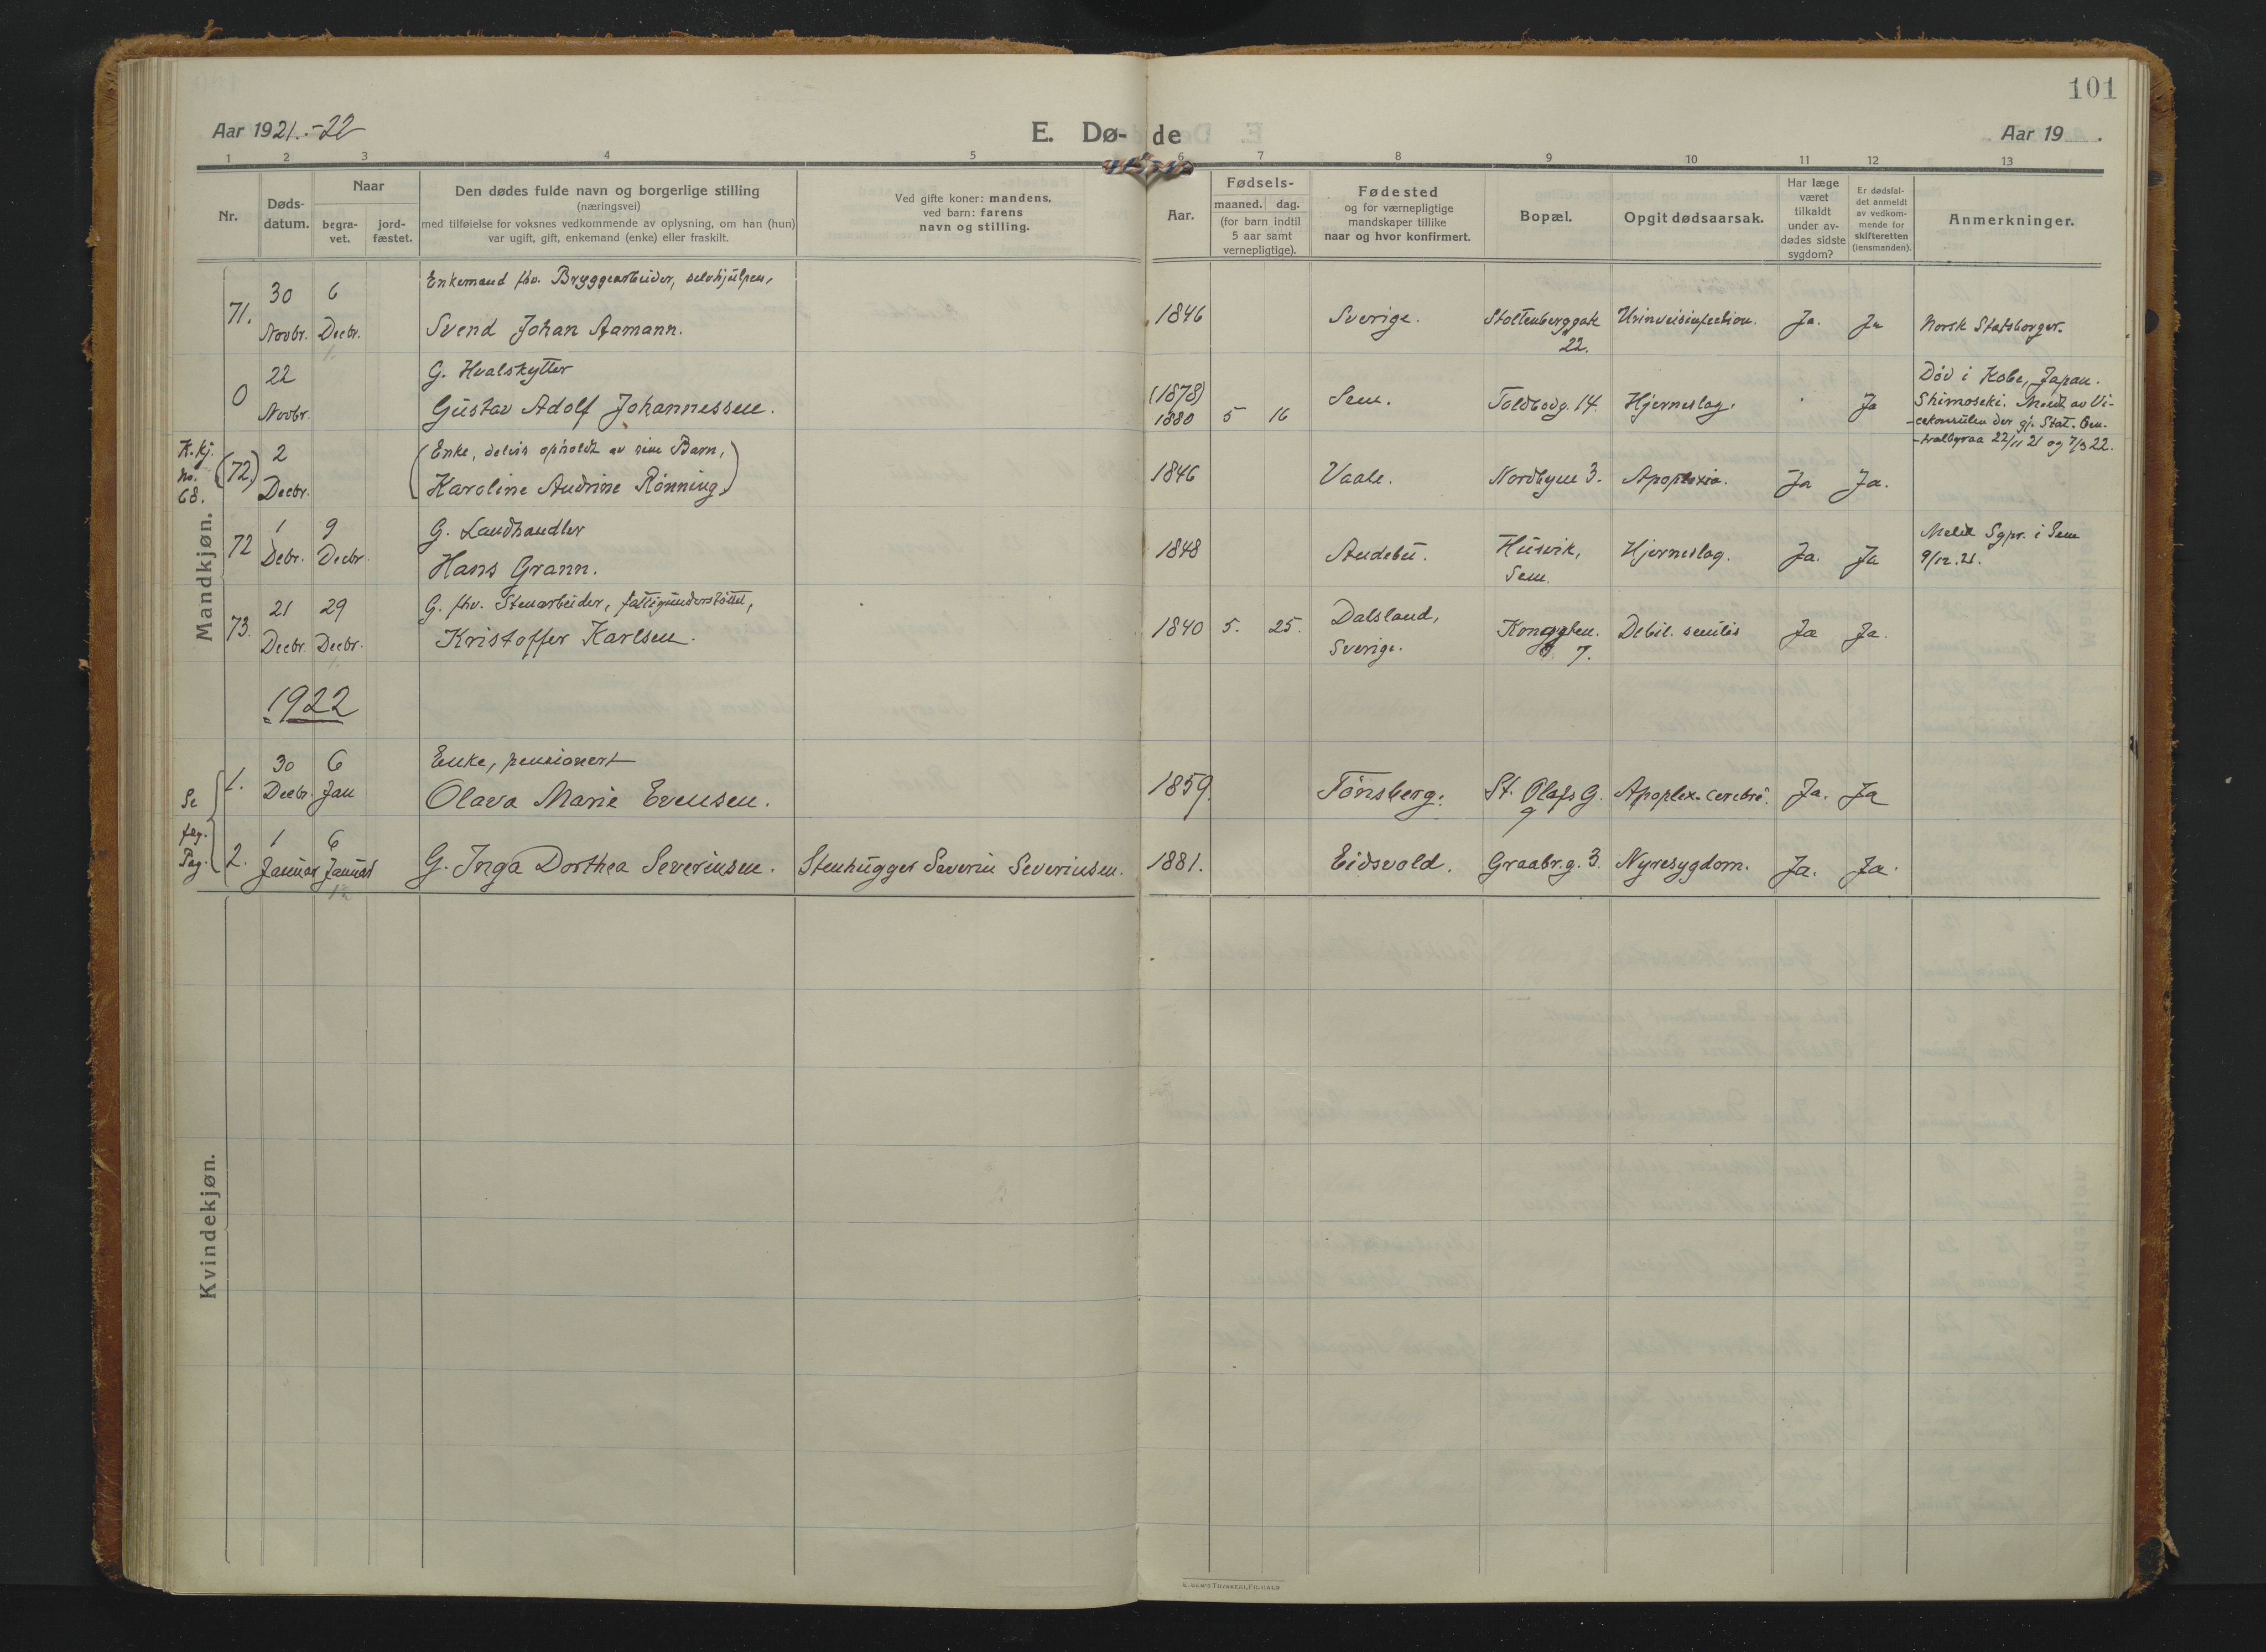 101
Aar 1921.-22
E. Dø- de
Aar 19 .
1 2 3 4 5 6 7 8 9 10 11 12 13
Nr.
Døds-
datum.
Naar
begra-
vet.
jord-
fæstet.
Den dødes fulde navn og borgerlige stilling
(næringsvei)
med tilføielse for voksnes vedkommende av oplysning, om han (hun)
var ugift, gift, enkemand (enke) eller fraskilt.
Ved gifte koner: mandens,
ved barn: farens
navn og stilling.
Aar.
Fødsels-
maaned. dag.
(for barn indtil
5 aar samt
vernepligtige).
Fødested
og for værnepligtige
mandskaper tillike
naar og hvor konfirmert.
Bopæl.
Opgit dødsaarsak.
Har læge
været
tilkaldt
under av-
dødes sidste
sygdom?
Er dødsfal-
det anmeldt
av vedkom-
mende for
skifteretten
(lensmanden).
Anmerkninger.
Mandkjøn.
71.
30
Novbr.
6
Decbr.
Enkemand fhv. Bryggearbeider, selvhjulpen,
Svend Johan Aamann.
1846
Sverige.
Stoltenberggate
22.
Urinveisinfection.
Ja.
Ja
Norsk Statsborger.
0
22
Novbr.
G. Hvalskytter
Gustav Adolf Johannessen.
(1878)
1880 5 16
Sem.
Toldbodg. 14.
Hjerneslag.
Ja
Död i Kobe, Japan.
Shimoseki. Medt. av Vi-
-cekonsulen der gj. Stat. Cen-
-tralbyraa 22/11 21 og 7/3 22.
K.kj.
No.
68.
(72)
2
Decbr.
(Enke, delvis opholdt av sine Barn,
Karoline Andrine Rönning)
1846
Vaale.
Nordbyen 3.
Apoplexia.
Ja
Ja.
72
1
Debr.
9
Decbr.
G. Landhandler
Hans Grann.
1848
Andebu.
Husvik,
Sem.
Hjerneslag.
Ja.
Ja
Meldt Sgpr. i Sem
9/12.21.
73.
21
Decbr.
29
Decbr.
G. fhv. Stenarbeider, fattigunderstöttet,
Kristoffer Karlsen.
1840 5. 25.
Dalsland,
Sverige.
7.
Debil. senilis
Ja
Ja.
1922
Se
Pag.
1.
30
Decbr.
6
Jan
Enke, pensionert
Olava Marie Evensen.
1859.
Tönsberg.
St. Olafs G.
9
Apoplex. cerebri.
Ja.
Ja
2.
1
Januar
6
Januar
G. Inga Dorthea Severinsen.
Stenhugger Severin Severinsen.
1881.
Eidsvold.
Graabr.g. 3
Nyresygdom.
Ja.
Ja.
Kvindekjøn.